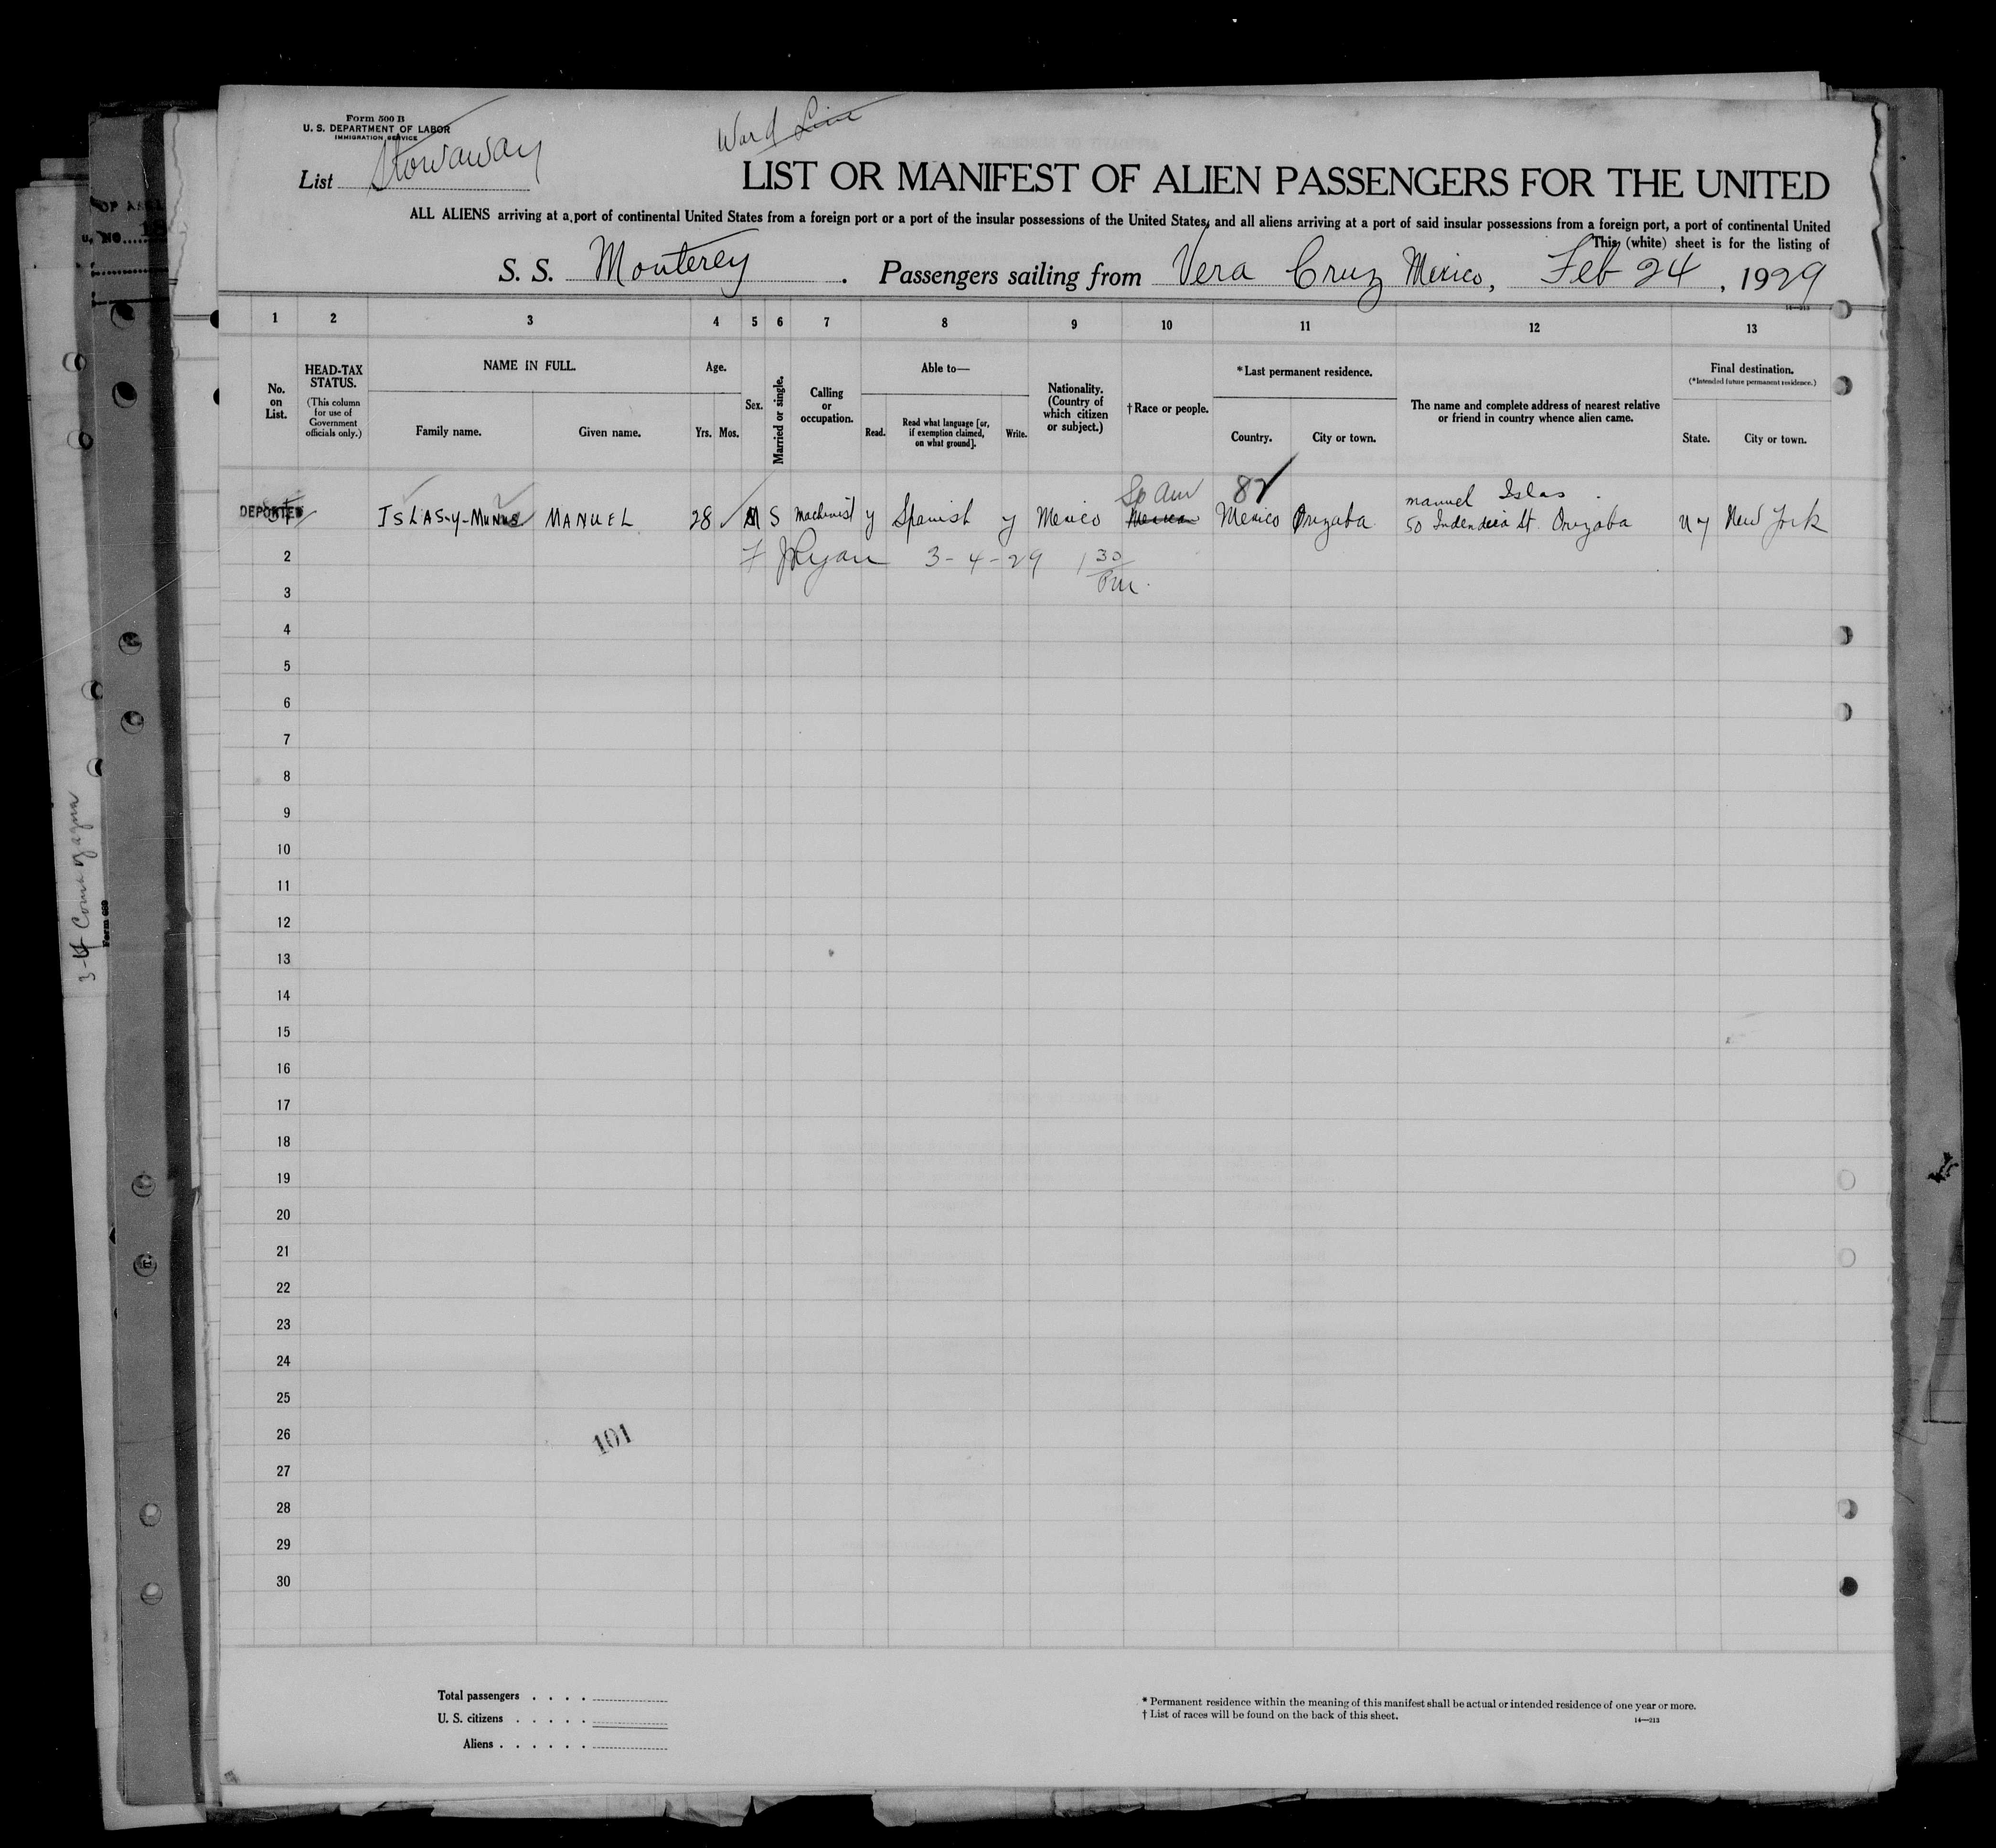 Form 500 B
U. S. DEPARTMENT OF LABOR
IMMIGRATION SERVICE
Ward Line
List Stowaway
LIST OR MANIFEST OF ALIEN PASSENGERS FOR THE UNITED
ALL ALIENS arriving at a port of continental United States from a foreign port or a port of the insular possessions of the United States, and all aliens arriving at a port of said insular possessions from a foreign port, a port of continental United
This (white) sheet is for the listing of
S. S. Monterey . Passengers sailing from Vera Cruz Mexico, Feb 24, 1929
14—213
1 2 3 4 5 6 7 8 9 10 11 12 13
No. on List.
HEAD-TAX STATUS.
(This column for use of Government officials only.)
NAME IN FULL.
Family name. Given name.
Age.
Yrs. Mos.
Sex.
Married or single.
Calling or occupation.
Able to—
Read.
Read what language [or, if exemption claimed, on what ground].
Write.
Nationality. (Country of which citizen or subject.)
† Race or people.
*Last permanent residence.
Country. City or town.
The name and complete address of nearest relative or friend in country whence alien came.
Final destination.
(*Intended future permanent residence.)
State. City or town.
So Am 82 manuel Islas
DEPORTED ISLAS-y- MANUEL 28 M S Machinist y Spanish y Mexico Mexican Mexico Orizaba 50 St. Orizaba N Y New York
2 Ryan 3-4-29 1 30
3 Pm.
4
5
6
7
8
9
10
11
12
13
14
15
16
17
18
19
20
21
22
23
24
25
26
101
27
28
29
30
Total passengers . . . .
U. S. citizens . . . . .
Aliens . . . . . .
* Permanent residence within the meaning of this manifest shall be actual or intended residence of one year or more.
† List of races will be found on the back of this sheet.
14—213
Form 680